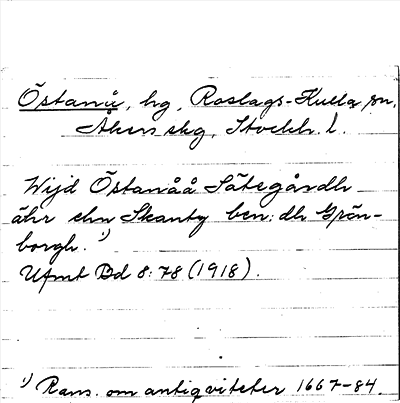 Östanå, hg, Roslags-Kulla sn,
Åkers skg, Stockh. l.
Wijd Östanåå Sätegårdh
ähr ehn Skantz ben:dh Grön-
borgh. ¹)
Ufmt Bd 8:78 (1918).
¹) Rans. om antiqviteter 1667-84.